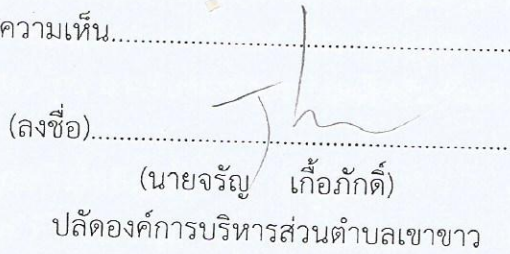 ความเห็น........................................................
(ลงชื่อ)........................................................
(นายจรัญ เกื้อภักดิ์)
ปลัดองค์การบริหารส่วนตำบลเขาขาว